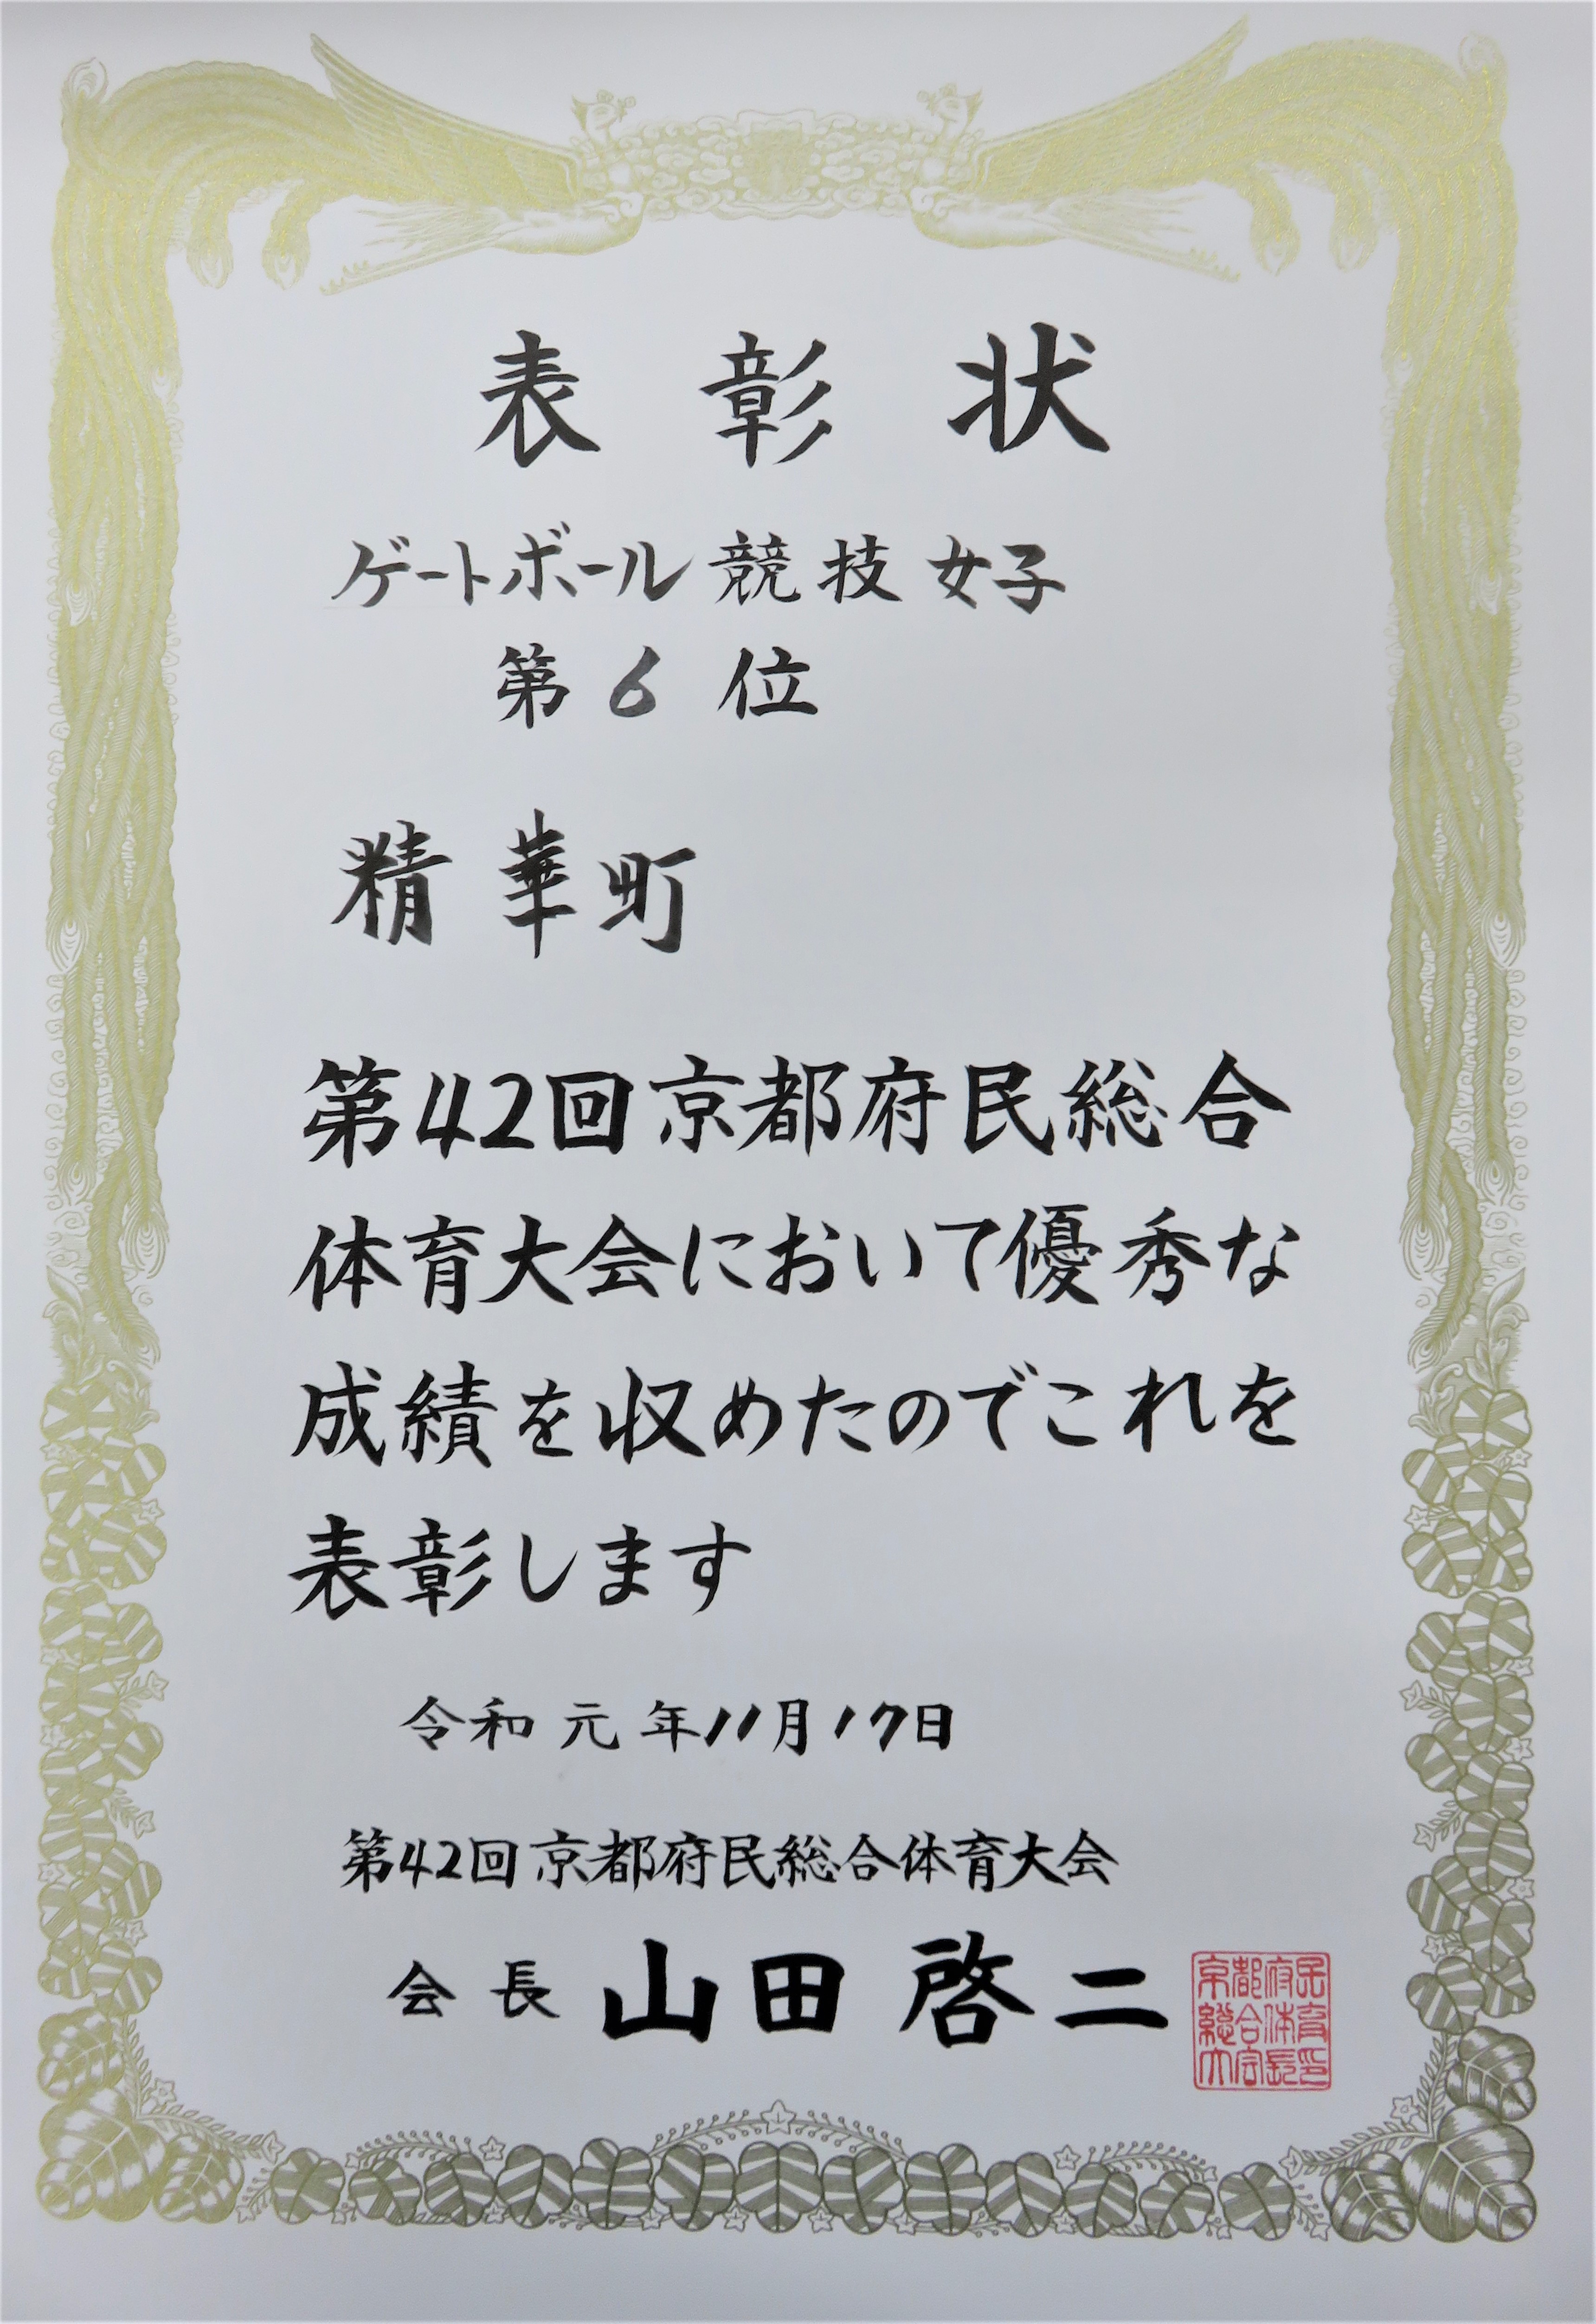 表彰状
ゲートボール競技女子
第6位
精華町
第42回京都府民総合
体育大会において優秀な
成績を収めたのでこれを
表彰します
令和元年11月17日
第42回京都府民総合体育大会
会長 山田啓二
京都府民
総合体育
大会長印